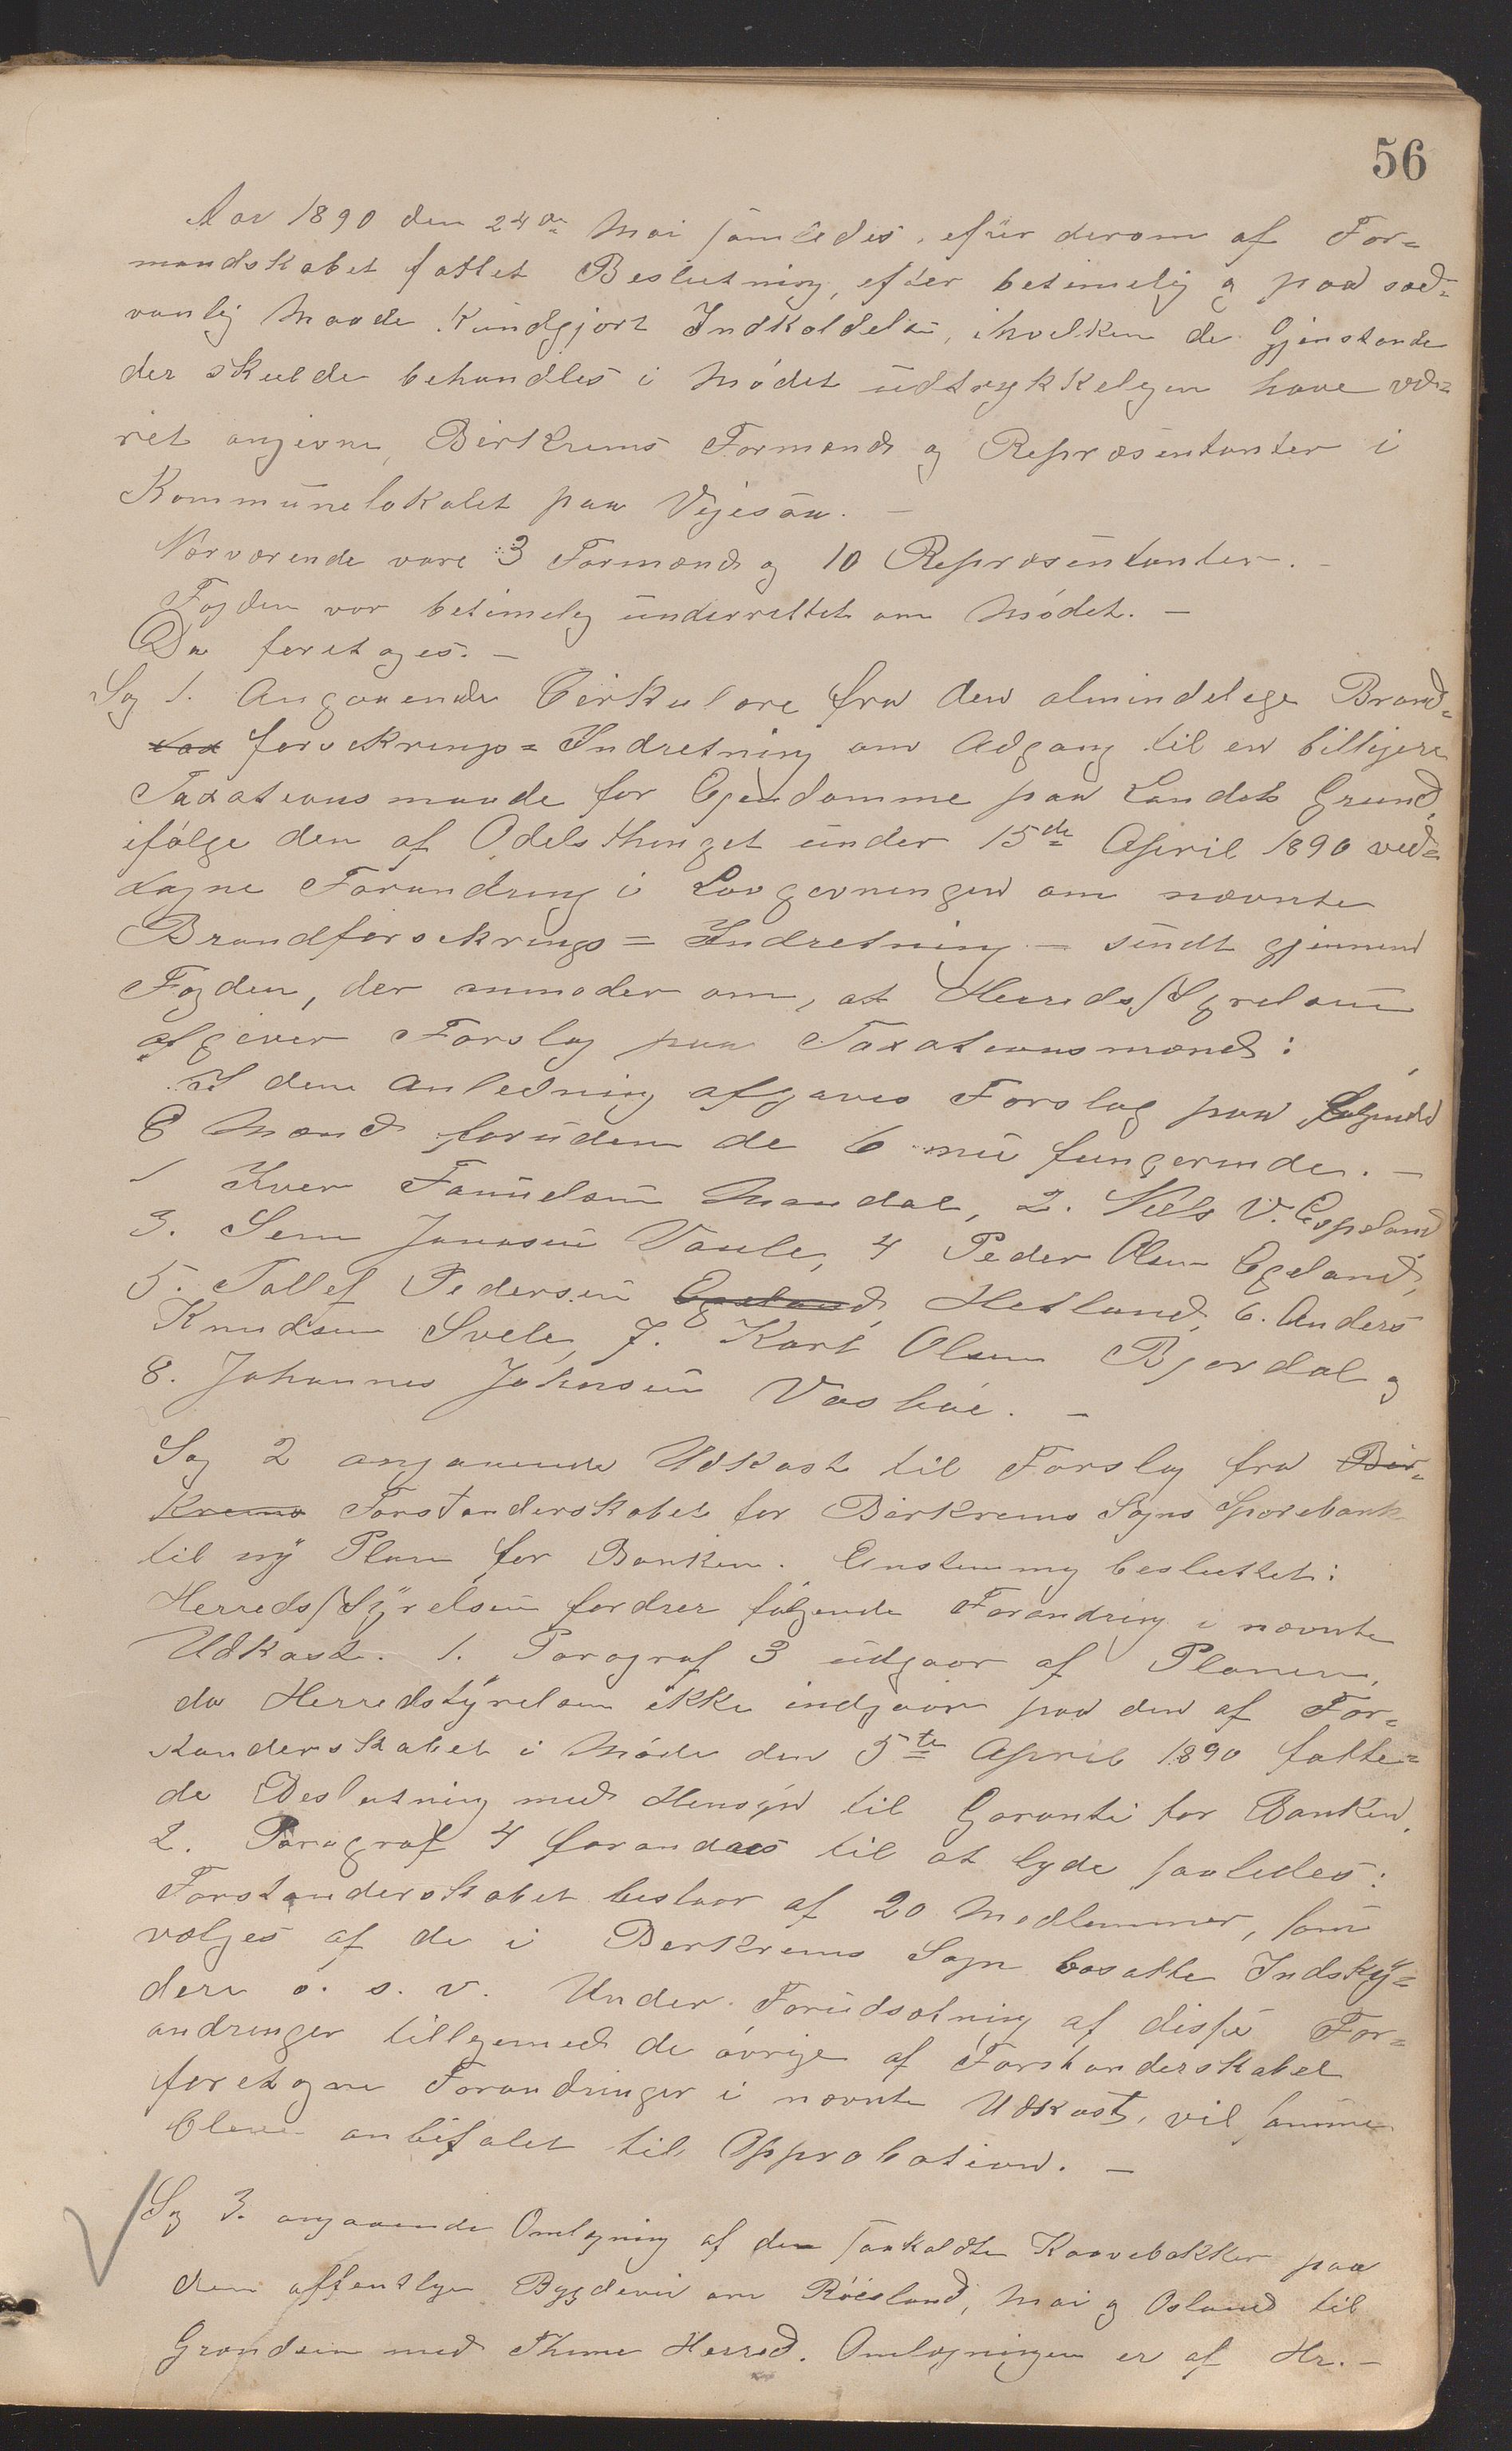 56
Aar 1890 den 24de Mai samledes, efter derom af For=
mandskabet fattet Beslutning, efter betimelig og paa sæd=
vanlig Maade kundgjort Indkaldelse, i hvilken de Gjenstande
der skulde behandles i Mødet udtrykkelgen have væ=
ret angivne, Birkrems Formænd og Repræsentanter i
Kommunelokalet paa Vigesaa. —
Nærværende vare 3 Formænd og 10 Repræsentanter. —
Fogden var betimelig underrettet om Mødet. —
Da foretoges. —
Sag 1. Angaaende Cirkulære fra den almindelige Brand=
tax forsikrings=Indretning om Adgang til en billigere
Taxationsmaade for Ejendomme paa Landets Grund,
ifølge den af Odelsthinget under 15de April 1890 ved=
tagne Forandring i Lovgivningen om nævnte
Brandforsikrings=Indretning — sendt gjennem
Fogden, der anmoder om, at Herredsstyrelsen
afgiver Forslag paa Taxationsmænd:
I den Anledning afgaves Forslag paa følgende
8 Mænd foruden de 6 nu fungerende. —
1 Iver Samuelsen Maudal, 2. Niels V. Espeland
3. Sem Janasen Vaule, 4 Peder Olsen Egeland,
5. Tollef Pedersen Egeland, Hetland, 6. Anders
Knudsen Svele, 7. Karl Olsen Bjordal og
8. Johannes Johnsen Vasbøe. —
Sag 2 angaaende Udkast til Forslag fra Bir=
krems Forstanderskabet for Birkrems Sogns Sparebank
til ny Plan for Banken. Enstemmig besluttet:
Herredsstyrelsen fordrer følgende Forandring i nævnte
Udkast. 1. Paragraf 3 udgaar af Planen,
da Herredstyrelsen ikke indgaar paa den af For=
standerskabet i Møde den 5te April 1890 fatte=
de Beslutning med Hensyn til Garanti for Banken.
2. Paragraf 4 forandres til at lyde saaledes:
Forstanderskabet bestaar af 20 Medlemmer, som
vælges af de i Birkrems Sogn bosatte Indsky=
dere o. s. v. Under Forudsætning af disse For=
andringer tilligemed de øvrige af Forstanderskabet
foretagne Forandringer i nævnte Udkast, vil samme
blive anbefalet til Approbation. —
Sag 3. angaaende Omlægning af den saakaldte Kaavebakker paa
den offentlige Bygdevei om Røisland, Mai og Osland til
Grændsen med Thime Herred. Omlægningen er af Hr. —